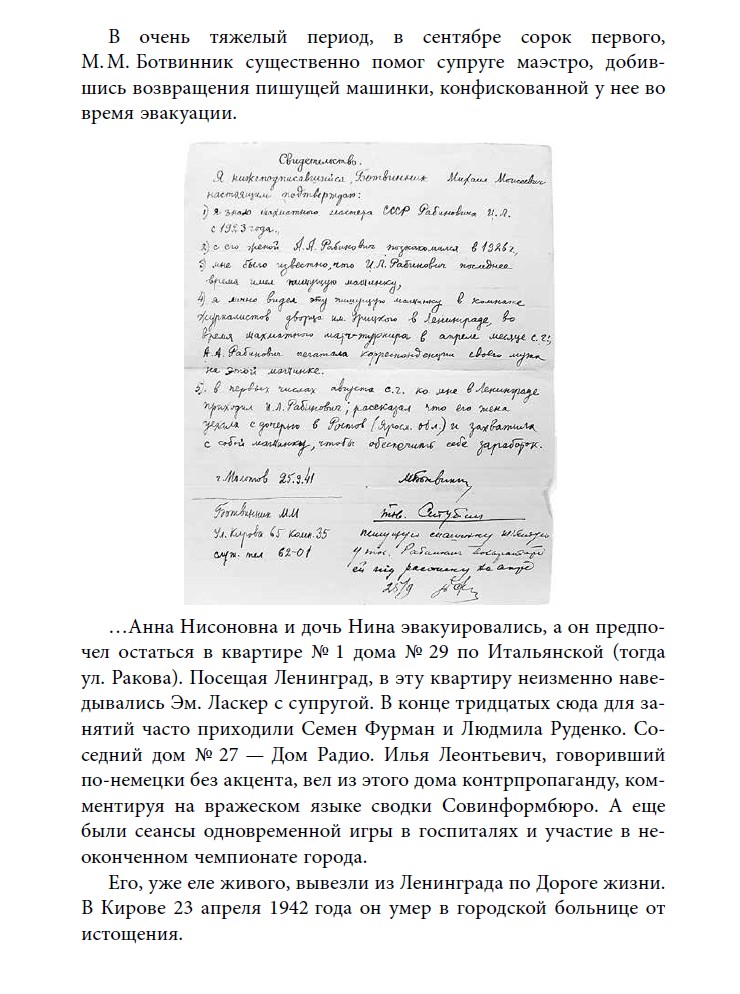 В очень тяжелый период, в сентябре сорок первого,
М. М. Ботвинник существенно помог супруге маэстро, добив-
шись возвращения пишущей машинки, конфискованной у нее во
время эвакуации.
Свидетельство.
Я нижеподписавшийся, Ботвинник Михаил Моисеевич
настоящим подтверждаю:
1) я знаю шахматного мастера СССР Рабиновича И.Л.
с 1923 года.,
2) с его женой А.А. Рабинович познакомился в 1926 г,
3) мне было известно, что И.Л. Рабинович последнее
время имел пишущую машинку,
4) я лично видел эту пишущую машинку в комнате
журналистов дворца им. Урицкого в Ленинграде, во
время шахматного матч-турнира в апреле месяце с.г.;
А.А. Рабинович печатала корреспонденции своего мужа
на этой машинке.
5). в первых числах августа с.г. ко мне в Ленинграде
приходил И.Л. Рабинович, рассказал что его жена
уехала с дочерью в Ростов (Яросл. обл.) и захватила
с собой машинку, чтобы обеспечить себе заработок.
г. Молотов 25.9.41
Ботвинник М.М
Ул. Кирова 65 комн. 35
служ. тел 62-01
тов.
пишущую машинку
у тов. Рабинович
ей под расписку
25/9
…Анна Нисоновна и дочь Нина эвакуировались, а он предпо-
чел остаться в квартире № 1 дома № 29 по Итальянской (тогда
ул. Ракова). Посещая Ленинград, в эту квартиру неизменно наве-
дывались Эм. Ласкер с супругой. В конце тридцатых сюда для за-
нятий часто приходили Семен Фурман и Людмила Руденко. Со-
седний дом № 27 — Дом Радио. Илья Леонтьевич, говоривший
по-немецки без акцента, вел из этого дома контрпропаганду, ком-
ментируя на вражеском языке сводки Совинформбюро. А еще
были сеансы одновременной игры в госпиталях и участие в не-
оконченном чемпионате города.
Его, уже еле живого, вывезли из Ленинграда по Дороге жизни.
В Кирове 23 апреля 1942 года он умер в городской больнице от
истощения.